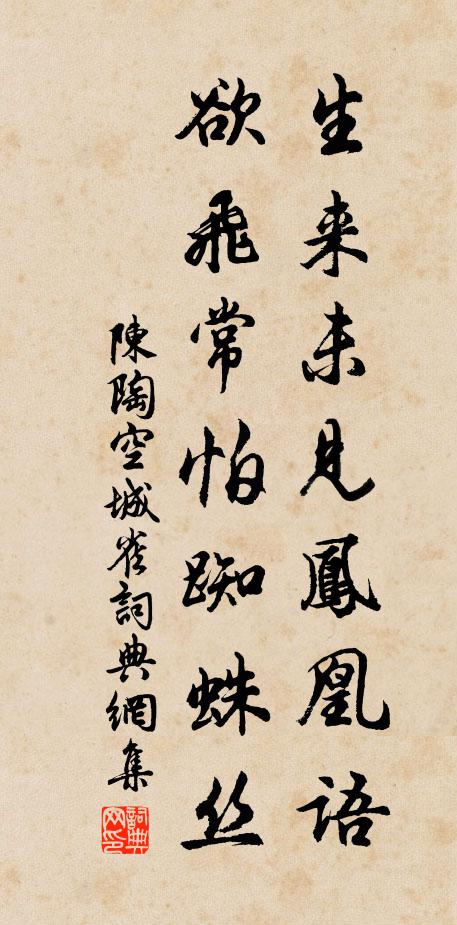 生来未見鳳凰語
欲飛常怕蜘蛛丝
陳陶空城雀詞典網集
詞典网印